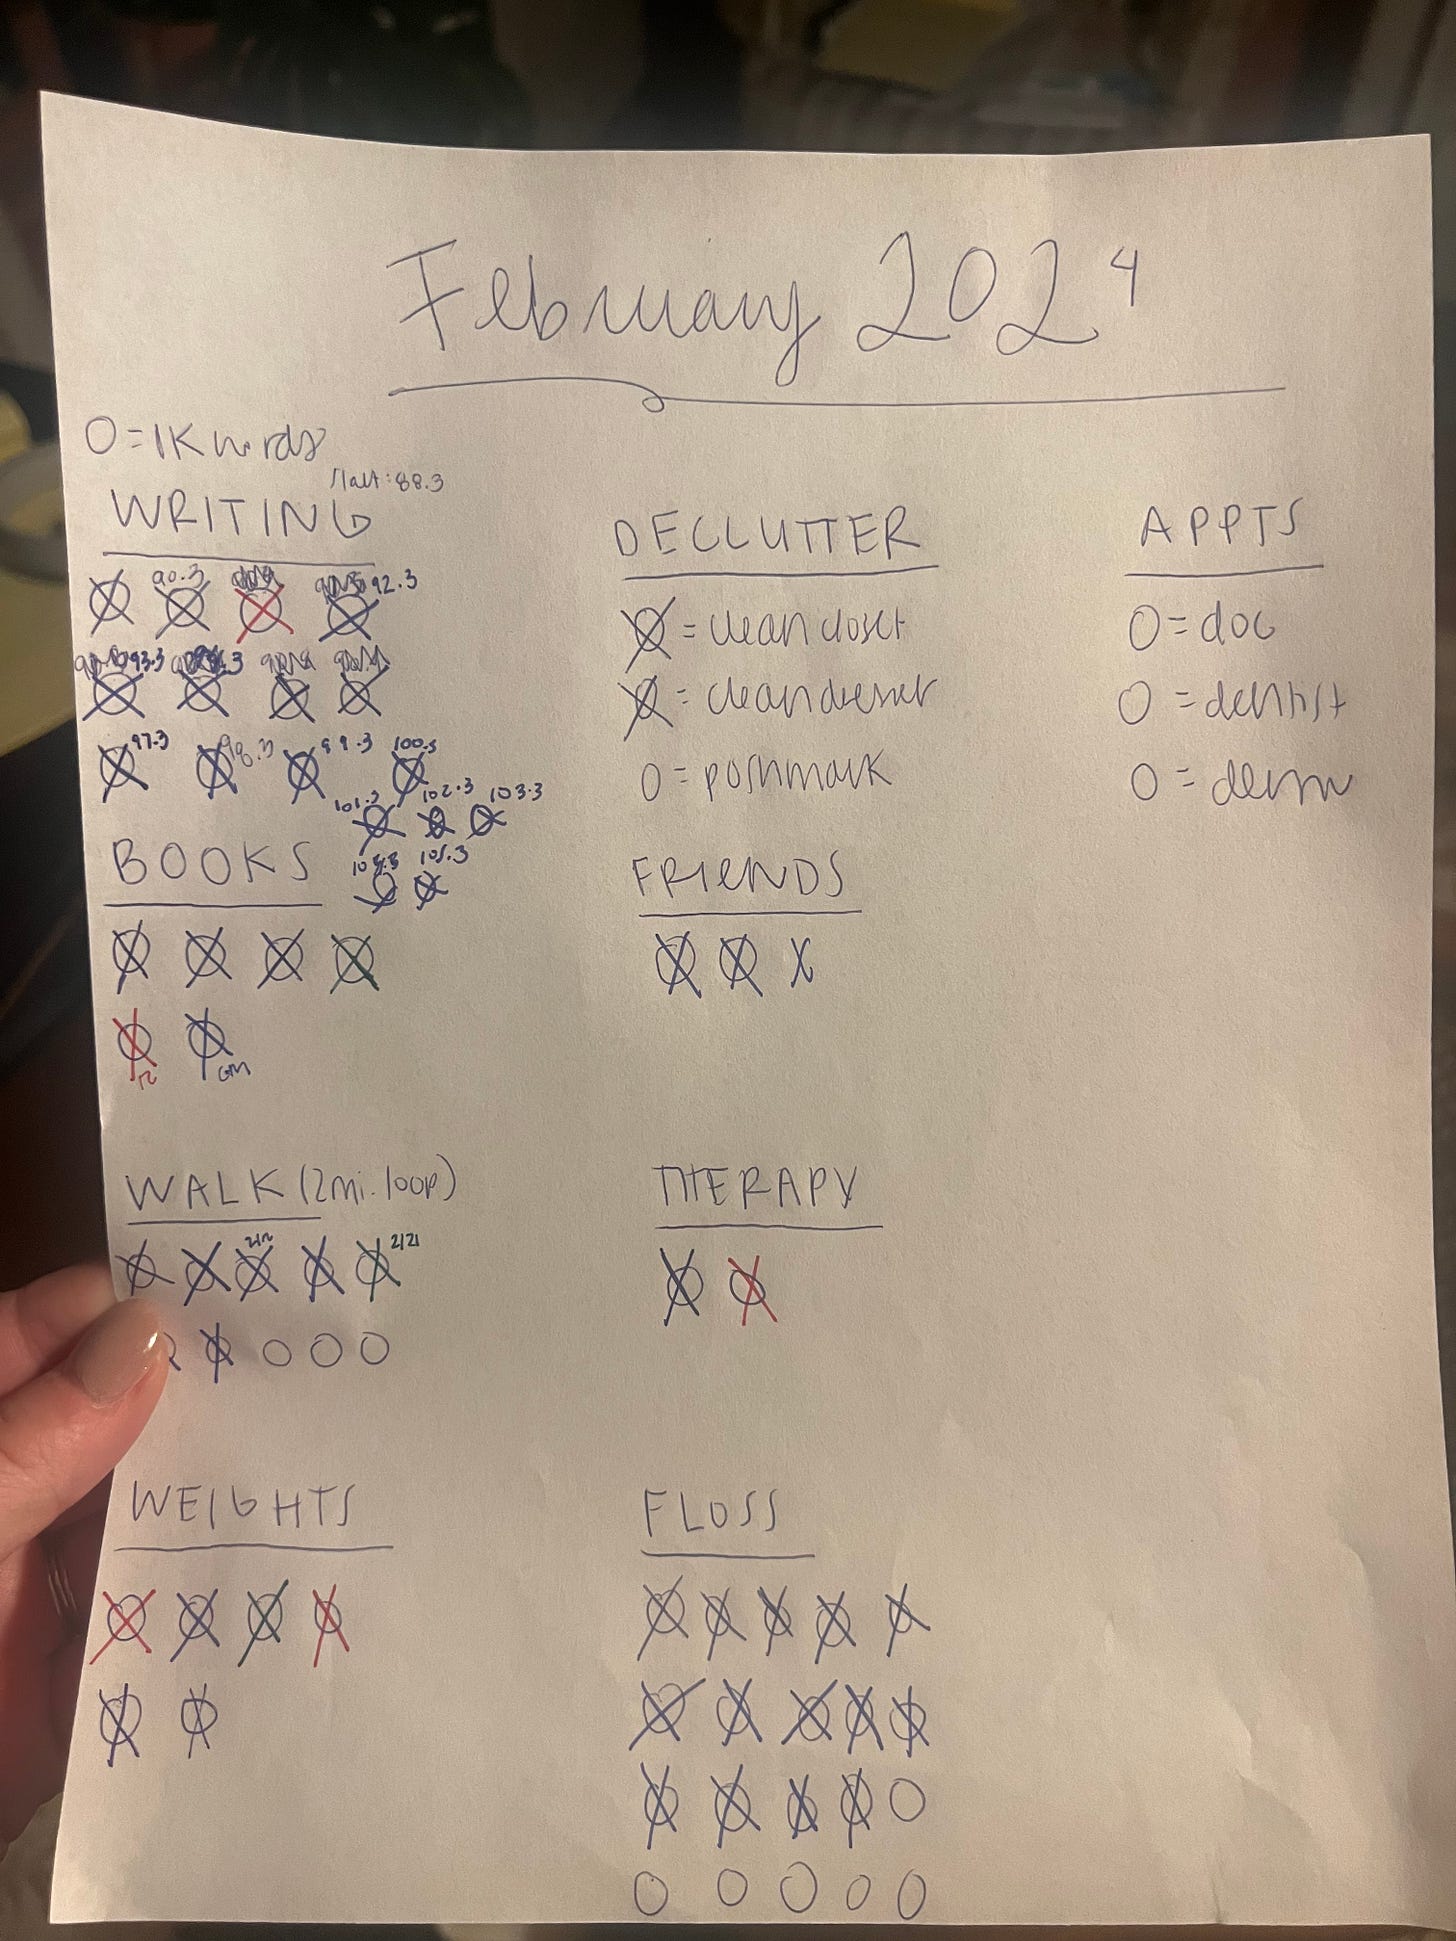 February 2024
O = 1K words
Start: 88.3
WRITING
90.3
92.3
93.3
97.3 98.3 99.3 100.3
101.3 102.3 103.3
104.3 105.3
BOOKS
GM
WALK (2mi. loop)
2/21
WEIGHTS
DECLUTTER
= clean closet
= clean dresser
O = poshmark
FRIENDS
THERAPY
FLOSS
APPTS
O = doc
O = dentist
O = derm